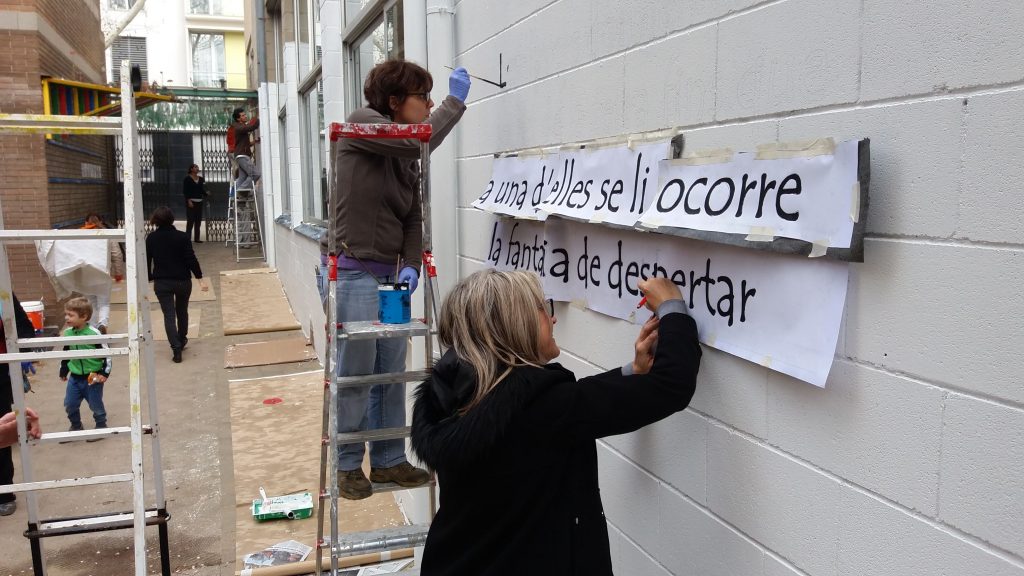 a una d'elles se li ocorre
la fantà a de despertar